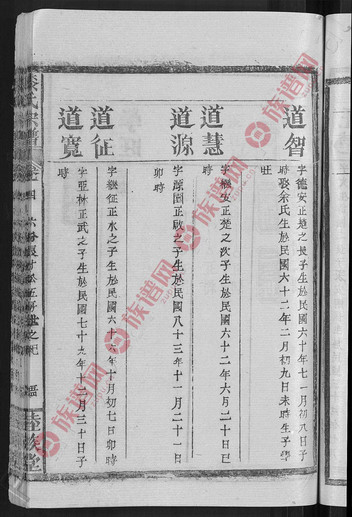 道智
字德安正楚之長子生於民國六十年七月初八日子
時娶余氏生於民國六十二年二月初九日未時生子學
旺
道慧
字楓安正楚之次子生於民國六十二年六月二十日巳
時
道源
字源固正啟之子生於民國八十三年十一月二十一日
卯時
道征
字征正水之子生於民國六六年十月初七日卯時
道寬
字亞林正武之子生於民國七十九年十二月三十日子
時
氏宗譜
之
堂
族谱网